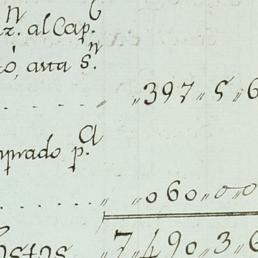 z.ⁿ al Cap.ᵇ
tó, asta s.ⁿ
..... „ „397„5„6
mprado p.ᵃ
..... „ „060„00
ostos „7„490„3„6